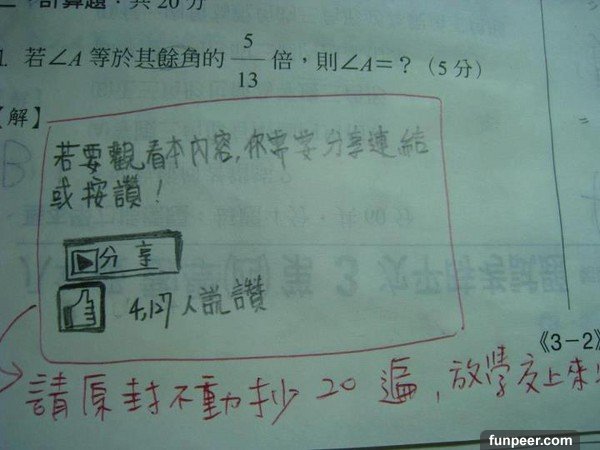 二、計算題：共20分
1. 若∠A等於其餘角的 5/13 倍，則∠A=？（5分）
【解】
若要觀看本內容，你需要分享連結
或按讚！
▶分享
4,127人說讚
《3－2》
請原封不動抄20遍，放學交上來
funpeer.com